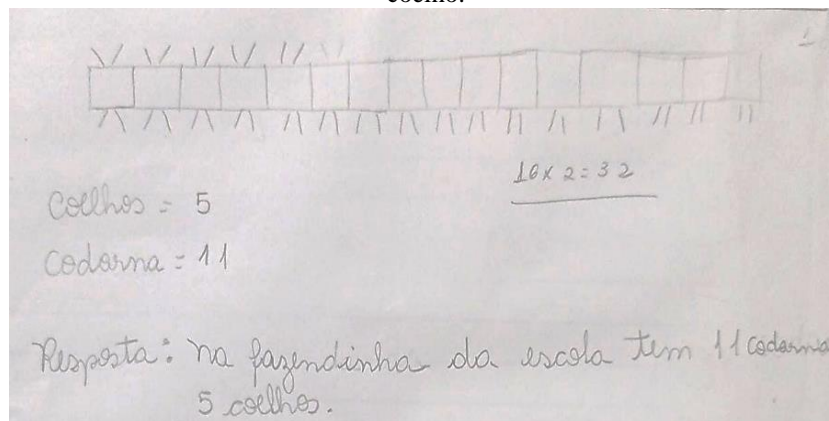 coelho.
16 x 2 = 32
Coelhos = 5
Codorna = 11
Resposta: na fazendinha da escola tem 11 codorna
5 coelhos.